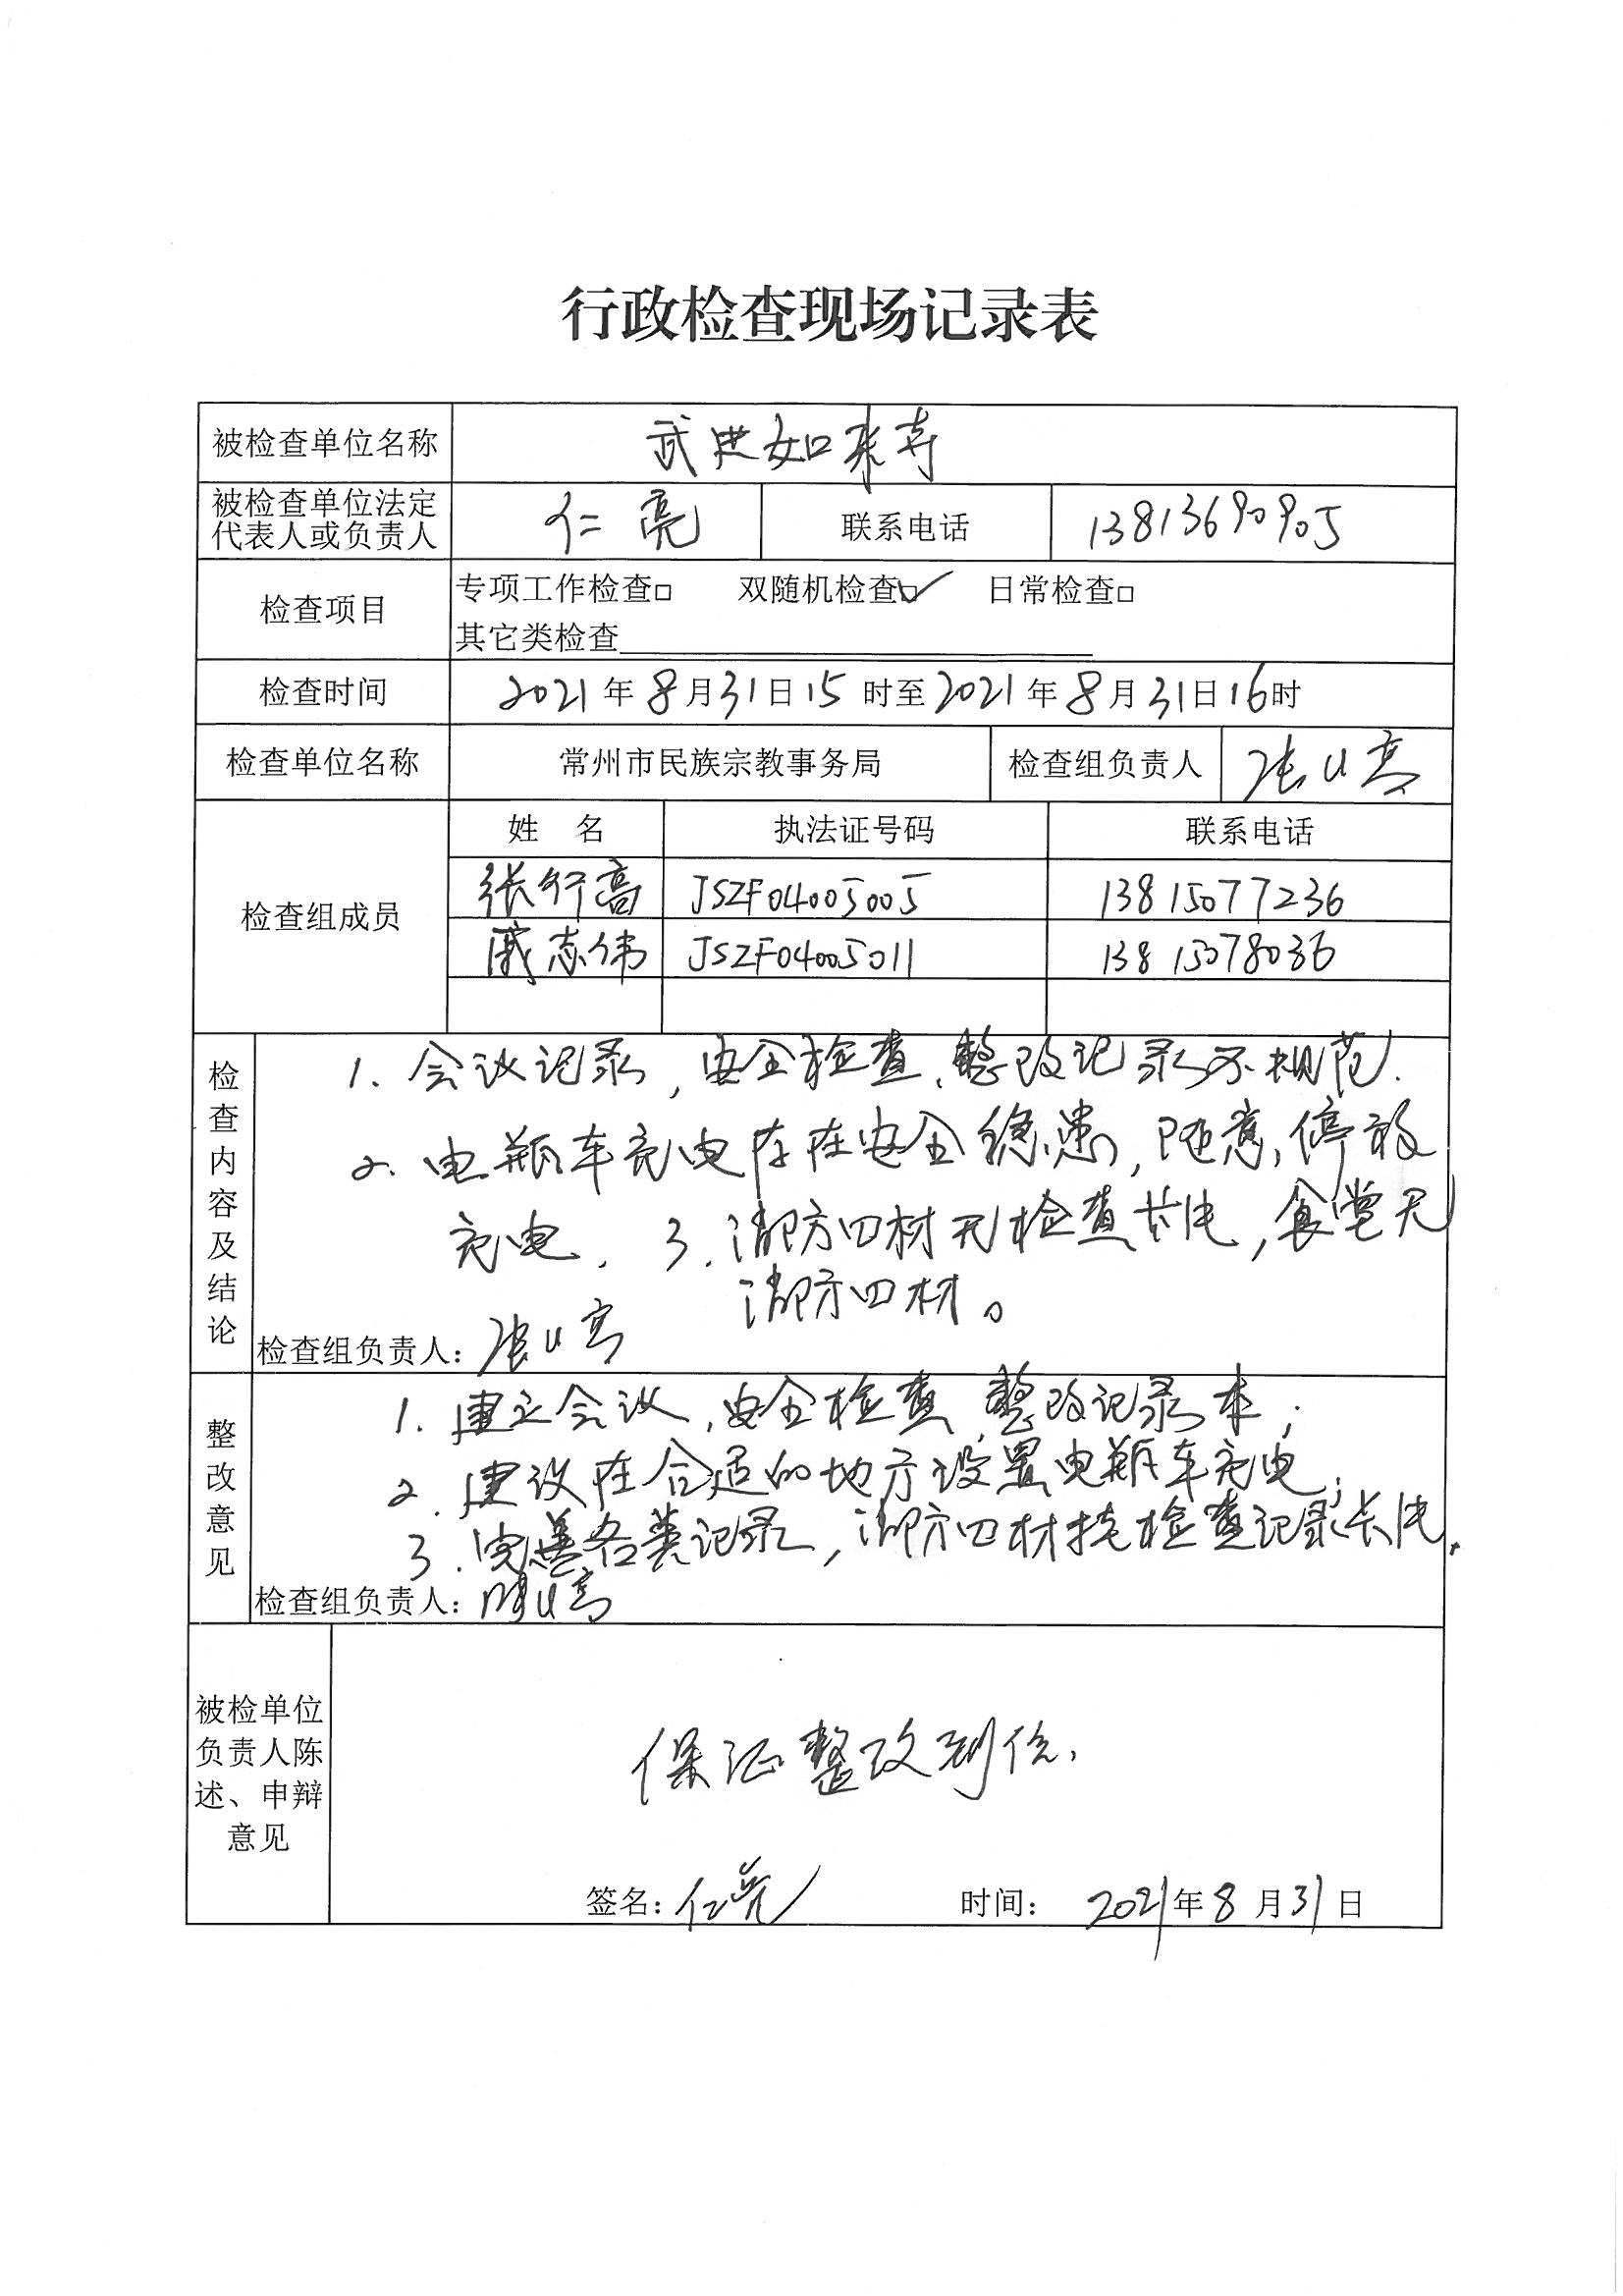 行政检查现场记录表
被检查单位名称 武进如来寺
被检查单位法定
代表人或负责人 仁亮 联系电话 13813690905
检查项目 专项工作检查□ 双随机检查☑ 日常检查□
其它类检查
检查时间 2021年8月31日15时至2021年8月31日16时
检查单位名称 常州市民族宗教事务局 检查组负责人 张行高
检查组成员 姓 名 执法证号码 联系电话
张行高 JSZF04005005 13815077236
戚志伟 JSZF04005011 13815078036
检查内容及结论
1. 会议记录,安全检查、整改记录不规范.
2. 电瓶车充电存在安全隐患,随意停放
充电. 3. 消防四材无检查卡片,食堂无
消防四材。
检查组负责人:张行高
整改意见
1. 建立会议,安全检查、整改记录本;
2. 建议在合适的地方设置电瓶车充电;
3. 完善各类记录,消防四材挂检查记录卡片.
检查组负责人:张行高
被检单位
负责人陈
述、申辩
意见
保证整改到位.
签名:仁亮 时间: 2021年8月31日